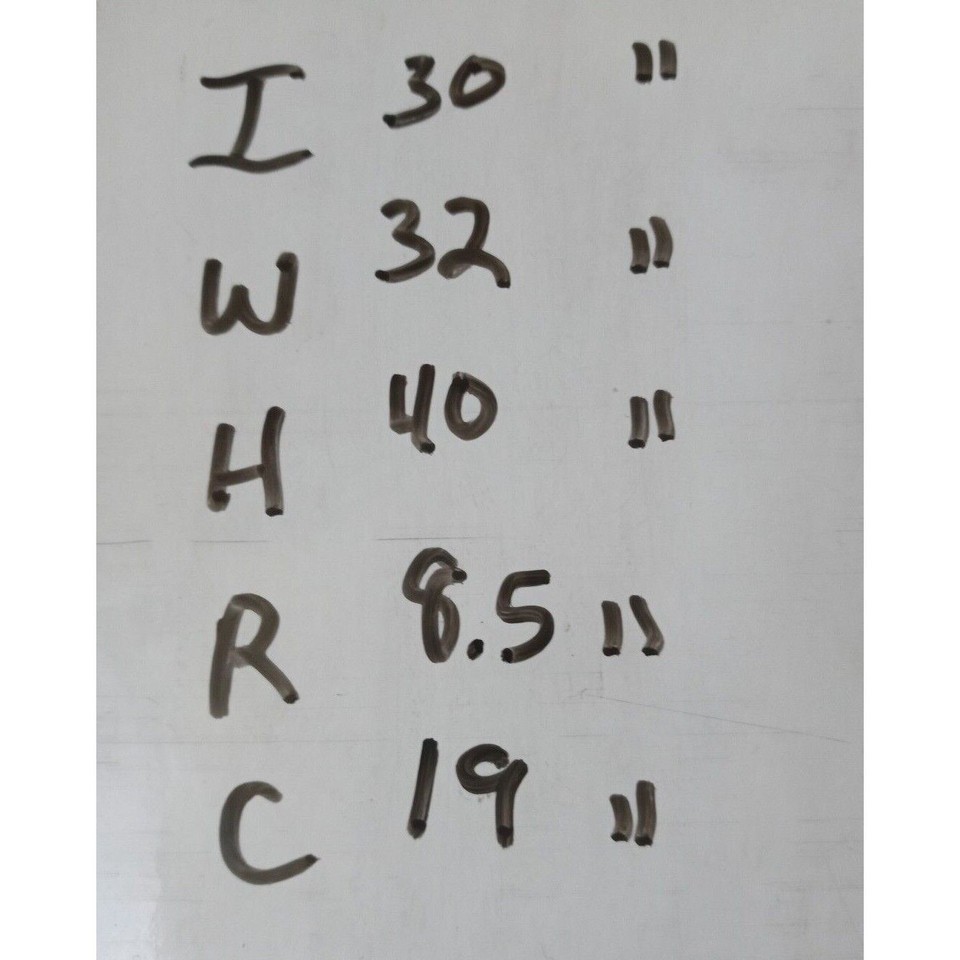 I 30 "
W 32 "
H 40 "
R 8.5 "
C 19 "